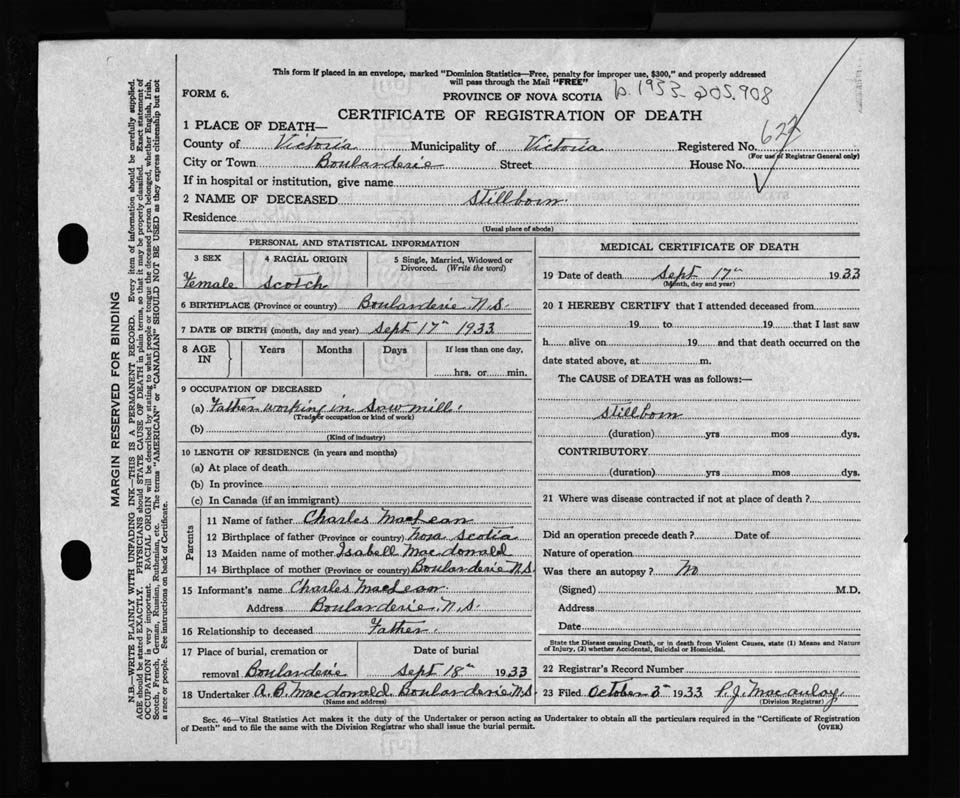 This form if placed in an envelope, marked "Dominion Statistics—Free, penalty for improper use, $300," and properly addressed
will pass through the Mail "FREE"
FORM 6.
PROVINCE OF NOVA SCOTIA b. 1933-205.908
CERTIFICATE OF REGISTRATION OF DEATH
1 PLACE OF DEATH—
County of Victoria Municipality of Victoria Registered No. 622
(For use of Registrar General only)
City or Town Boularderie Street House No.
If in hospital or institution, give name
2 NAME OF DECEASED Stillborn.
Residence
(Usual place of abode)
PERSONAL AND STATISTICAL INFORMATION
3 SEX 4 RACIAL ORIGIN 5 Single, Married, Widowed or
Divorced. (Write the word)
Female Scotch
6 BIRTHPLACE (Province or country) Boularderie N.S.
7 DATE OF BIRTH (month, day and year) Sept 17th 1933
8 AGE IN Years Months Days If less than one day,
hrs. or min.
9 OCCUPATION OF DECEASED
(a) Father working in Saw mill.
(Trade, or occupation or kind of work)
(b)
(Kind of industry)
10 LENGTH OF RESIDENCE (in years and months)
(a) At place of death
(b) In province
(c) In Canada (if an immigrant)
Parents
11 Name of father Charles MacLean
12 Birthplace of father (Province or country) Nova Scotia
13 Maiden name of mother Isabell Macdonald
14 Birthplace of mother (Province or country) Boularderie N.S.
15 Informant's name Charles MacLean
Address Boularderie, N.S.
16 Relationship to deceased Father.
17 Place of burial, cremation or Date of burial
removal Boularderie Sept 18th 1933
18 Undertaker A. B. Macdonald Boularderie N.S.
(Name and address)
MEDICAL CERTIFICATE OF DEATH
19 Date of death Sept 17th 1933
(Month, day and year)
20 I HEREBY CERTIFY that I attended deceased from
19 to 19 that I last saw
h alive on 19 and that death occurred on the
date stated above, at m.
The CAUSE of DEATH was as follows:—
Stillborn
(duration) yrs mos dys.
CONTRIBUTORY
(duration) yrs mos dys.
21 Where was disease contracted if not at place of death?
Did an operation precede death? Date of
Nature of operation
Was there an autopsy? No
(Signed) M.D.
Address
Date
State the Disease causing Death, or in death from Violent Causes, state (1) Means and Nature
of Injury, (2) whether Accidental, Suicidal or Homicidal.
22 Registrar's Record Number
23 Filed October 3rd 1933 P.J. Macaulay.
(Division Registrar)
Sec. 46—Vital Statistics Act makes it the duty of the Undertaker or person acting as Undertaker to obtain all the particulars required in the "Certificate of Registration
of Death" and to file the same with the Division Registrar who shall issue the burial permit. (OVER)
MARGIN RESERVED FOR BINDING
N.B.—WRITE PLAINLY WITH UNFADING INK—THIS IS A PERMANENT RECORD. Every item of information should be carefully supplied.
AGE should be stated EXACTLY. PHYSICIANS should STATE CAUSE OF DEATH in plain terms, so that it may be properly classified. Exact statement of
OCCUPATION is very important. RACIAL ORIGIN will be described by stating to what people or tongue the deceased person belonged, whether English, Irish,
Scotch, French, German, Russian, Ruthenian, etc. The terms "AMERICAN" or "CANADIAN" SHOULD NOT BE USED as they express citizenship but not
a race or people. See instructions on back of Certificate.